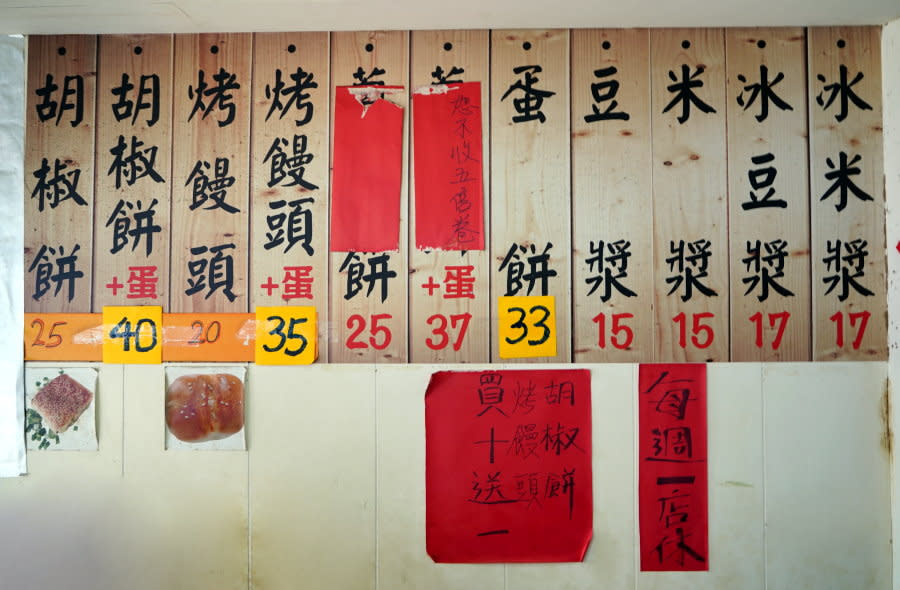 胡椒餅
25
胡椒餅+蛋
40
烤饅頭
20
烤饅頭+蛋
35
餅
25
恕不收五倍卷
餅+蛋
37
蛋餅
33
豆漿
15
米漿
15
冰豆漿
17
冰米漿
17
胡椒餅
烤饅頭
買十送一
每週一店休